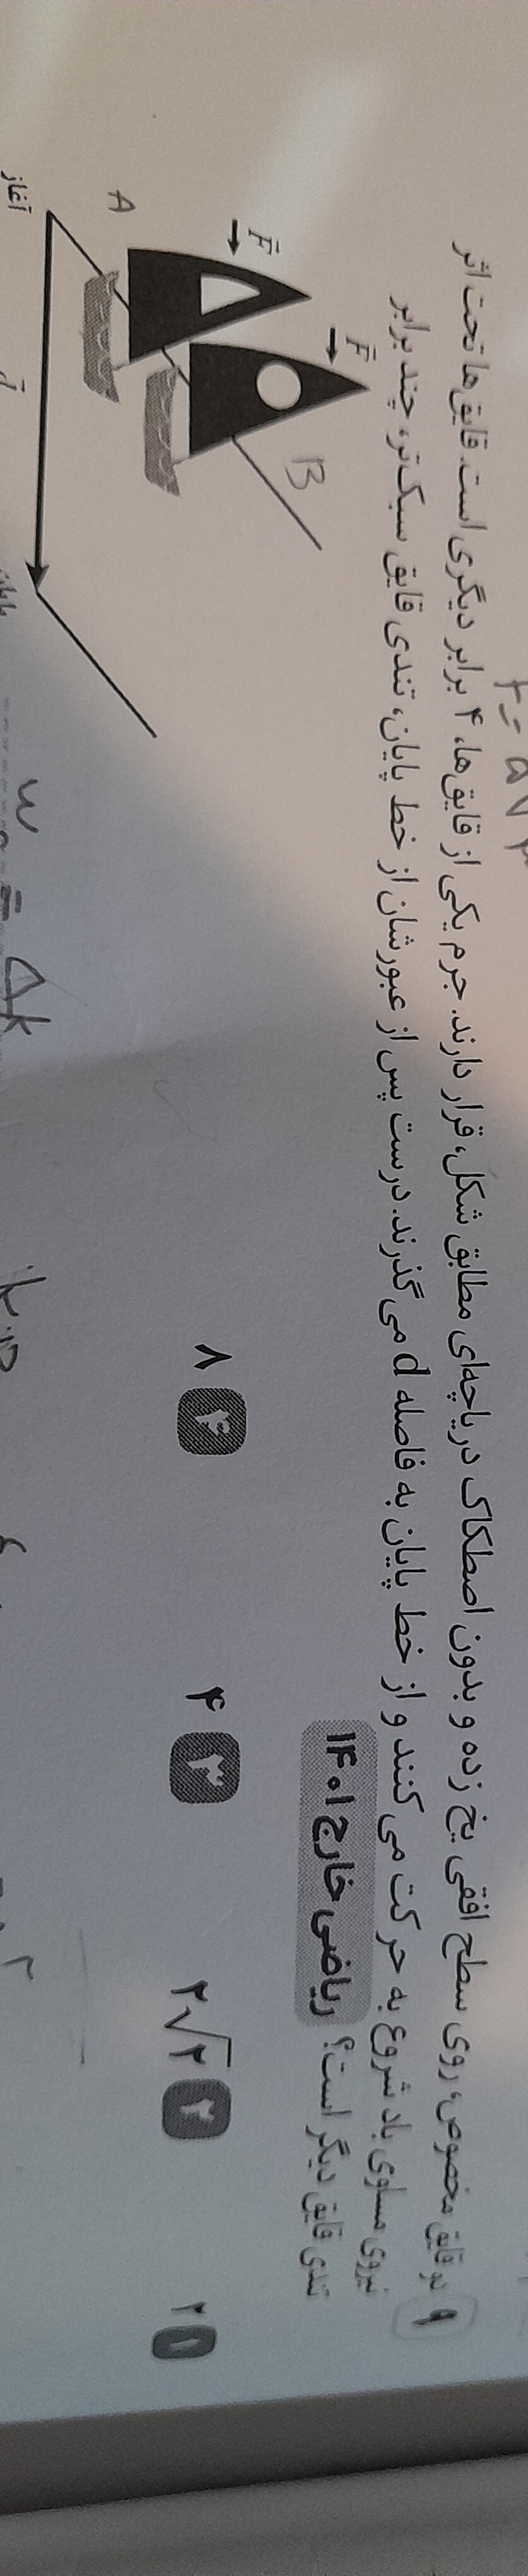 ۹ دو قایق مخصوص، روی سطح افقی یخ زده و بدون اصطکاک دریاچه‌ای مطابق شکل، قرار دارند. جرم یکی از قایق‌ها، ۴ برابر دیگری است. قایق‌ها تحت اثر
نیروی مساوی باد شروع به حرکت می‌کنند و از خط پایان به فاصله d می‌گذرند. درست پس از عبورشان از خط پایان، تندی قایق سبک‌تر، چند برابر
تندی قایق دیگر است؟ ریاضی خارج ۱۴۰۱
۱ ۲
۲ ۲√۲
۳ ۴
۴ ۸
F
F
A
B
آغاز
d
پایان